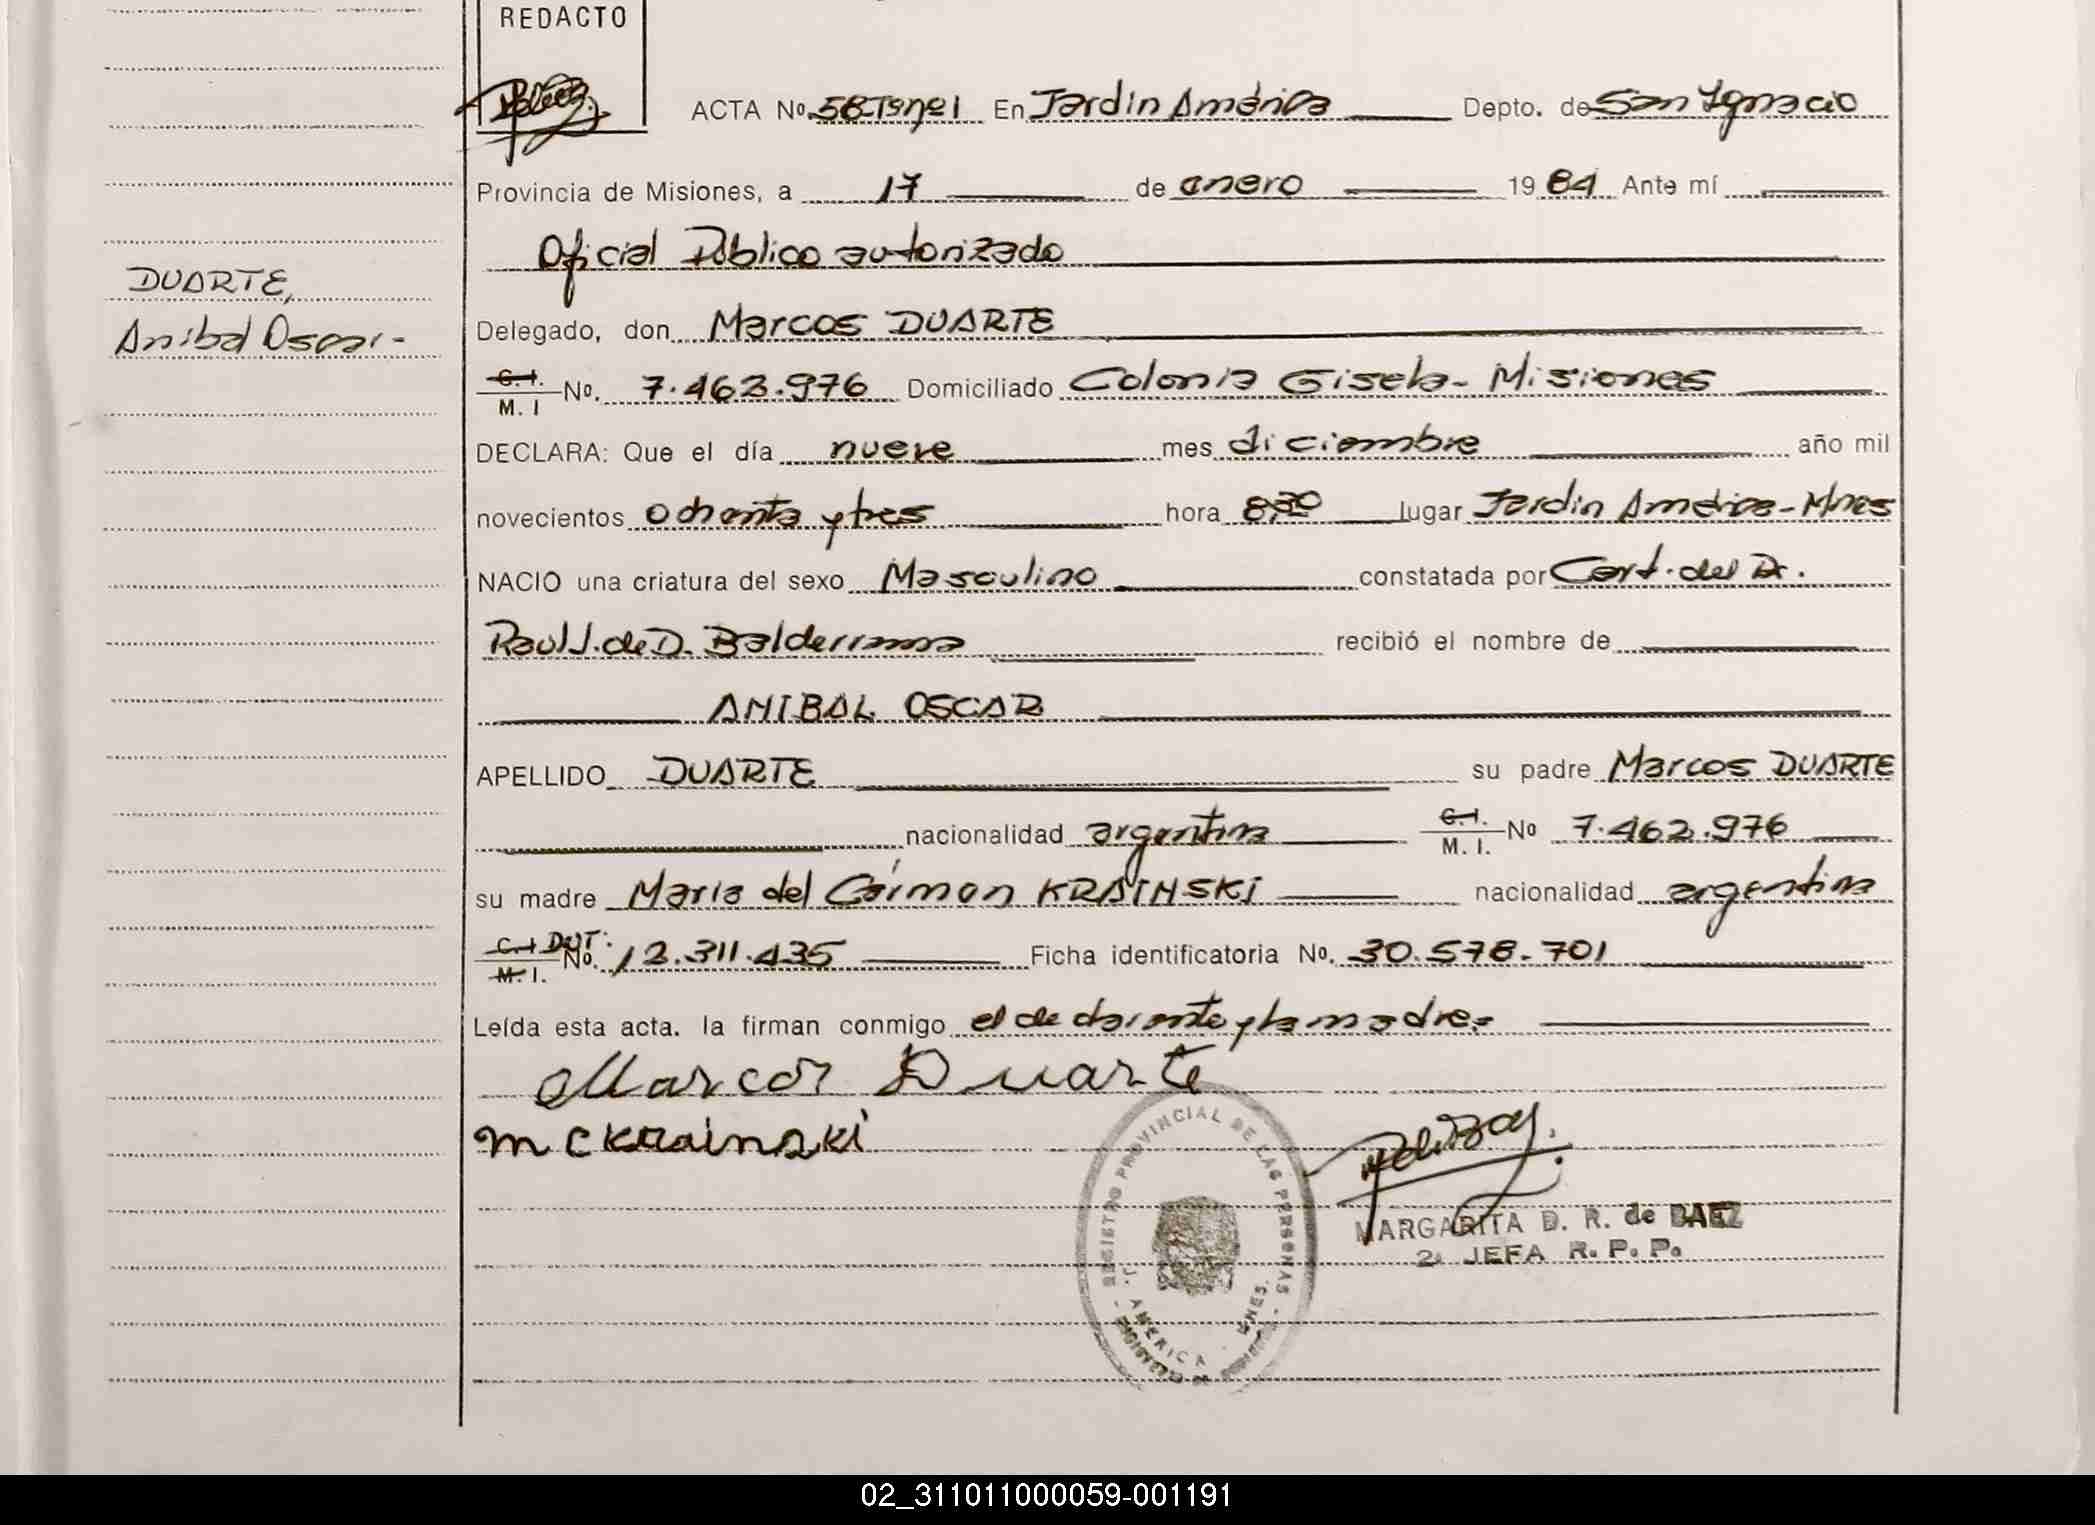 REDACTO
ACTA No. 58-Tº nº 1 En Jardín América Depto. de San Ignacio
Provincia de Misiones, a 17 de enero 1984 Ante mí
Oficial Público autorizado
DUARTE,
Anibal Oscar.-
Delegado, don Marcos DUARTE
C. I. M. I No. 7.462.976 Domiciliado Colonia Gisela - Misiones
DECLARA: Que el día nueve mes diciembre año mil
novecientos ochenta y tres hora 8,30 lugar Jardín América - Mnes
NACIO una criatura del sexo Masculino constatada por Cert. del Dr.
Raul J. de D. Balderrama recibió el nombre de
ANIBAL OSCAR
APELLIDO DUARTE su padre Marcos DUARTE
nacionalidad argentina C. I. M. I. No 7.462.976
su madre María del Cármen KRAINSKI nacionalidad argentina
C. I M. I. No. 12.311.435 Ficha identificatoria No. 30.578.701
Leída esta acta. la firman conmigo el declarante y la madre.-
Marcos Duarte
M C Krainski
REGISTRO PROVINCIAL DE LAS PERSONAS
J. AMERICA - MNES.
MARGARITA D. R. de BAEZ
2ª JEFA R. P. P.
02_311011000059-001191